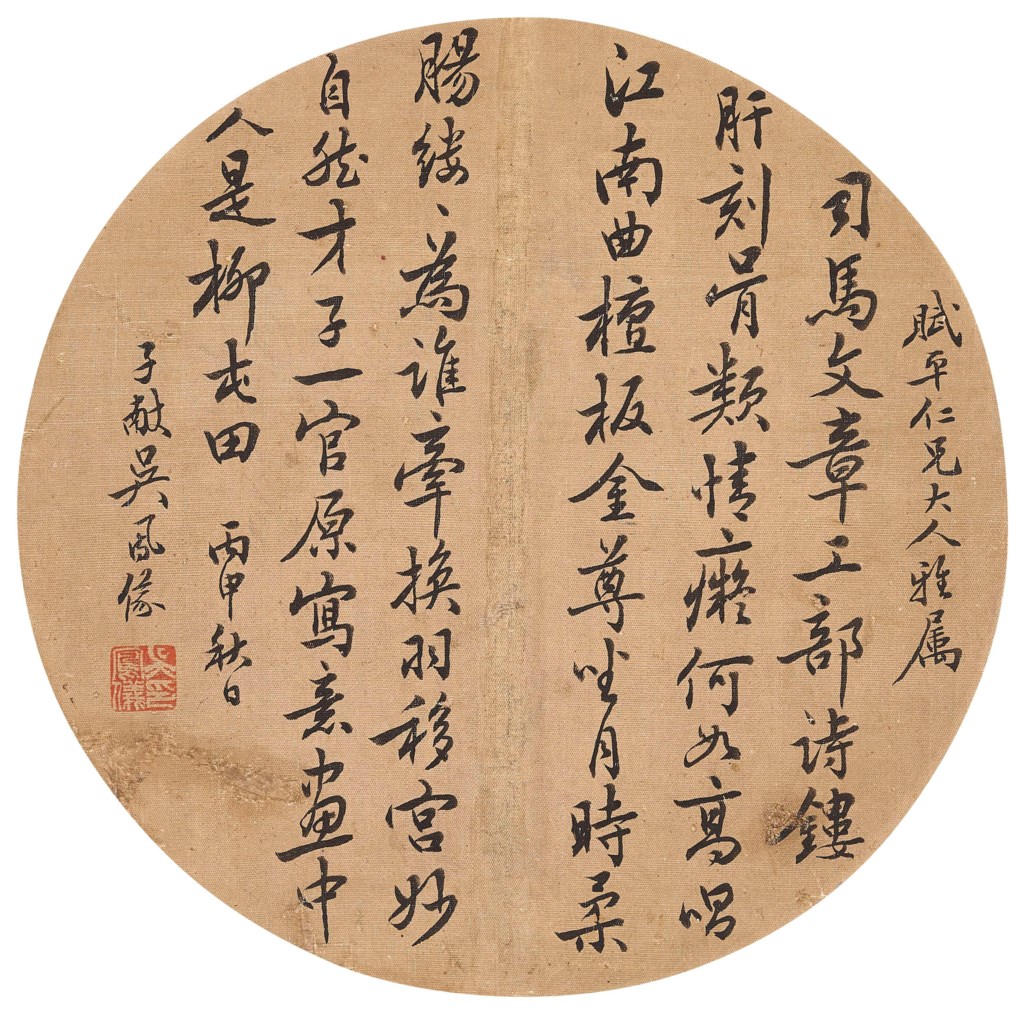 賦平仁兄大人雅属
司馬文章工部诗鏤
肝刻骨類情癡何如高唱
江南曲檀板金尊坐月時柔
腸縷〻為誰牽換羽移宫妙
自然才子一官原寫意畫中
人是柳屯田 丙申秋日
子献吳鳳儀
吳印鳳儀